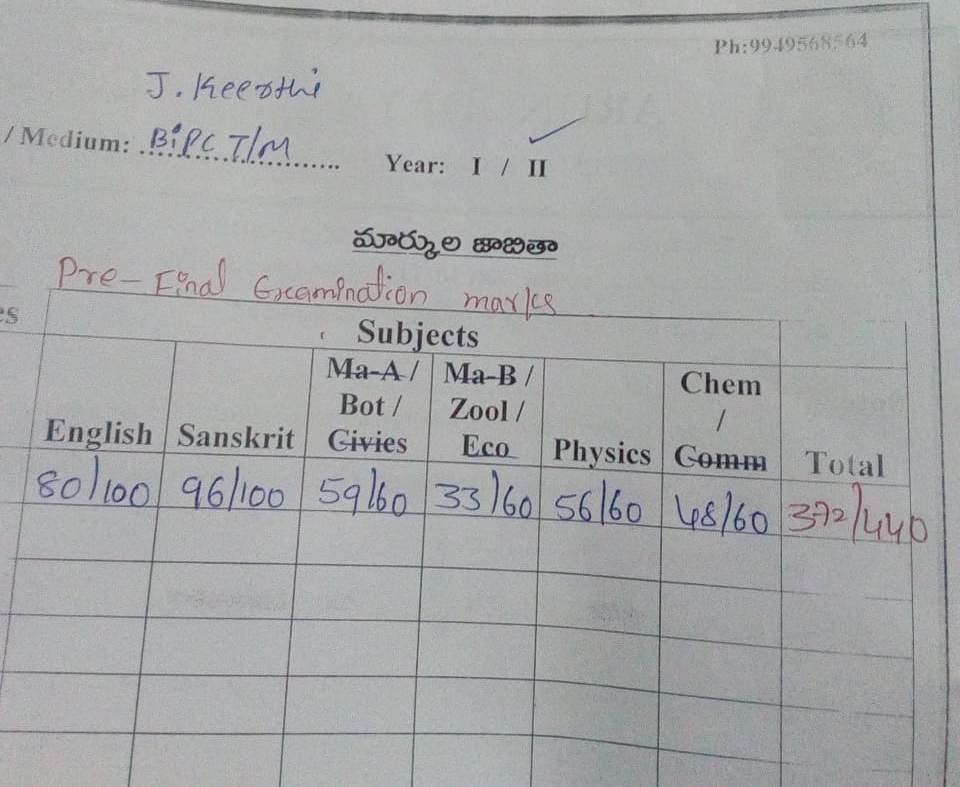 Ph:9949568564
J. Keerthi
/ Medium: BiPC T/M Year: I / II
మార్కుల జాబితా
Pre-Final Examination marks
es
Subjects
English Sanskrit Ma-A / Bot / Civies Ma-B / Zool / Eco Physics Chem / Comm Total
80/100 96/100 59/60 33/60 56/60 48/60 372/440